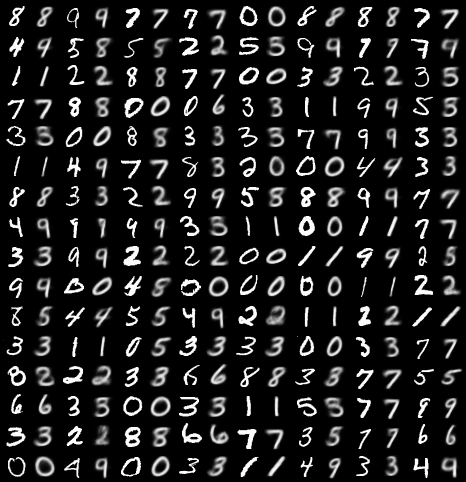 8 8 9 9 7 7 7 7 0 0 8 8 8 8 7 7
4 9 5 8 5 8 2 2 5 5 9 9 7 9 7 9
1 1 2 2 8 8 7 7 0 0 3 3 2 2 3 5
7 7 8 8 0 0 0 6 3 3 1 1 9 9 5 5
3 3 0 0 8 8 3 3 3 3 7 7 9 9 3 3
1 1 4 9 7 7 8 3 2 0 0 0 4 4 3 3
8 8 3 3 2 2 9 9 5 8 8 8 9 9 7 7
4 9 9 9 9 9 3 3 1 1 0 0 1 1 7 7
3 3 9 9 2 2 2 2 0 0 1 1 9 9 2 5
9 9 0 0 4 8 0 0 0 0 0 0 1 1 2 2
8 5 4 4 5 5 4 9 2 2 1 1 2 2 1 1
3 3 1 1 0 5 3 3 3 3 0 0 3 3 7 7
8 2 2 2 3 3 6 6 8 8 3 8 7 7 5 5
6 6 3 3 0 0 3 3 1 1 5 5 7 7 9 9
3 3 2 2 8 8 6 6 7 7 3 5 7 7 6 6
0 0 4 9 0 0 3 3 1 1 4 9 3 3 4 9